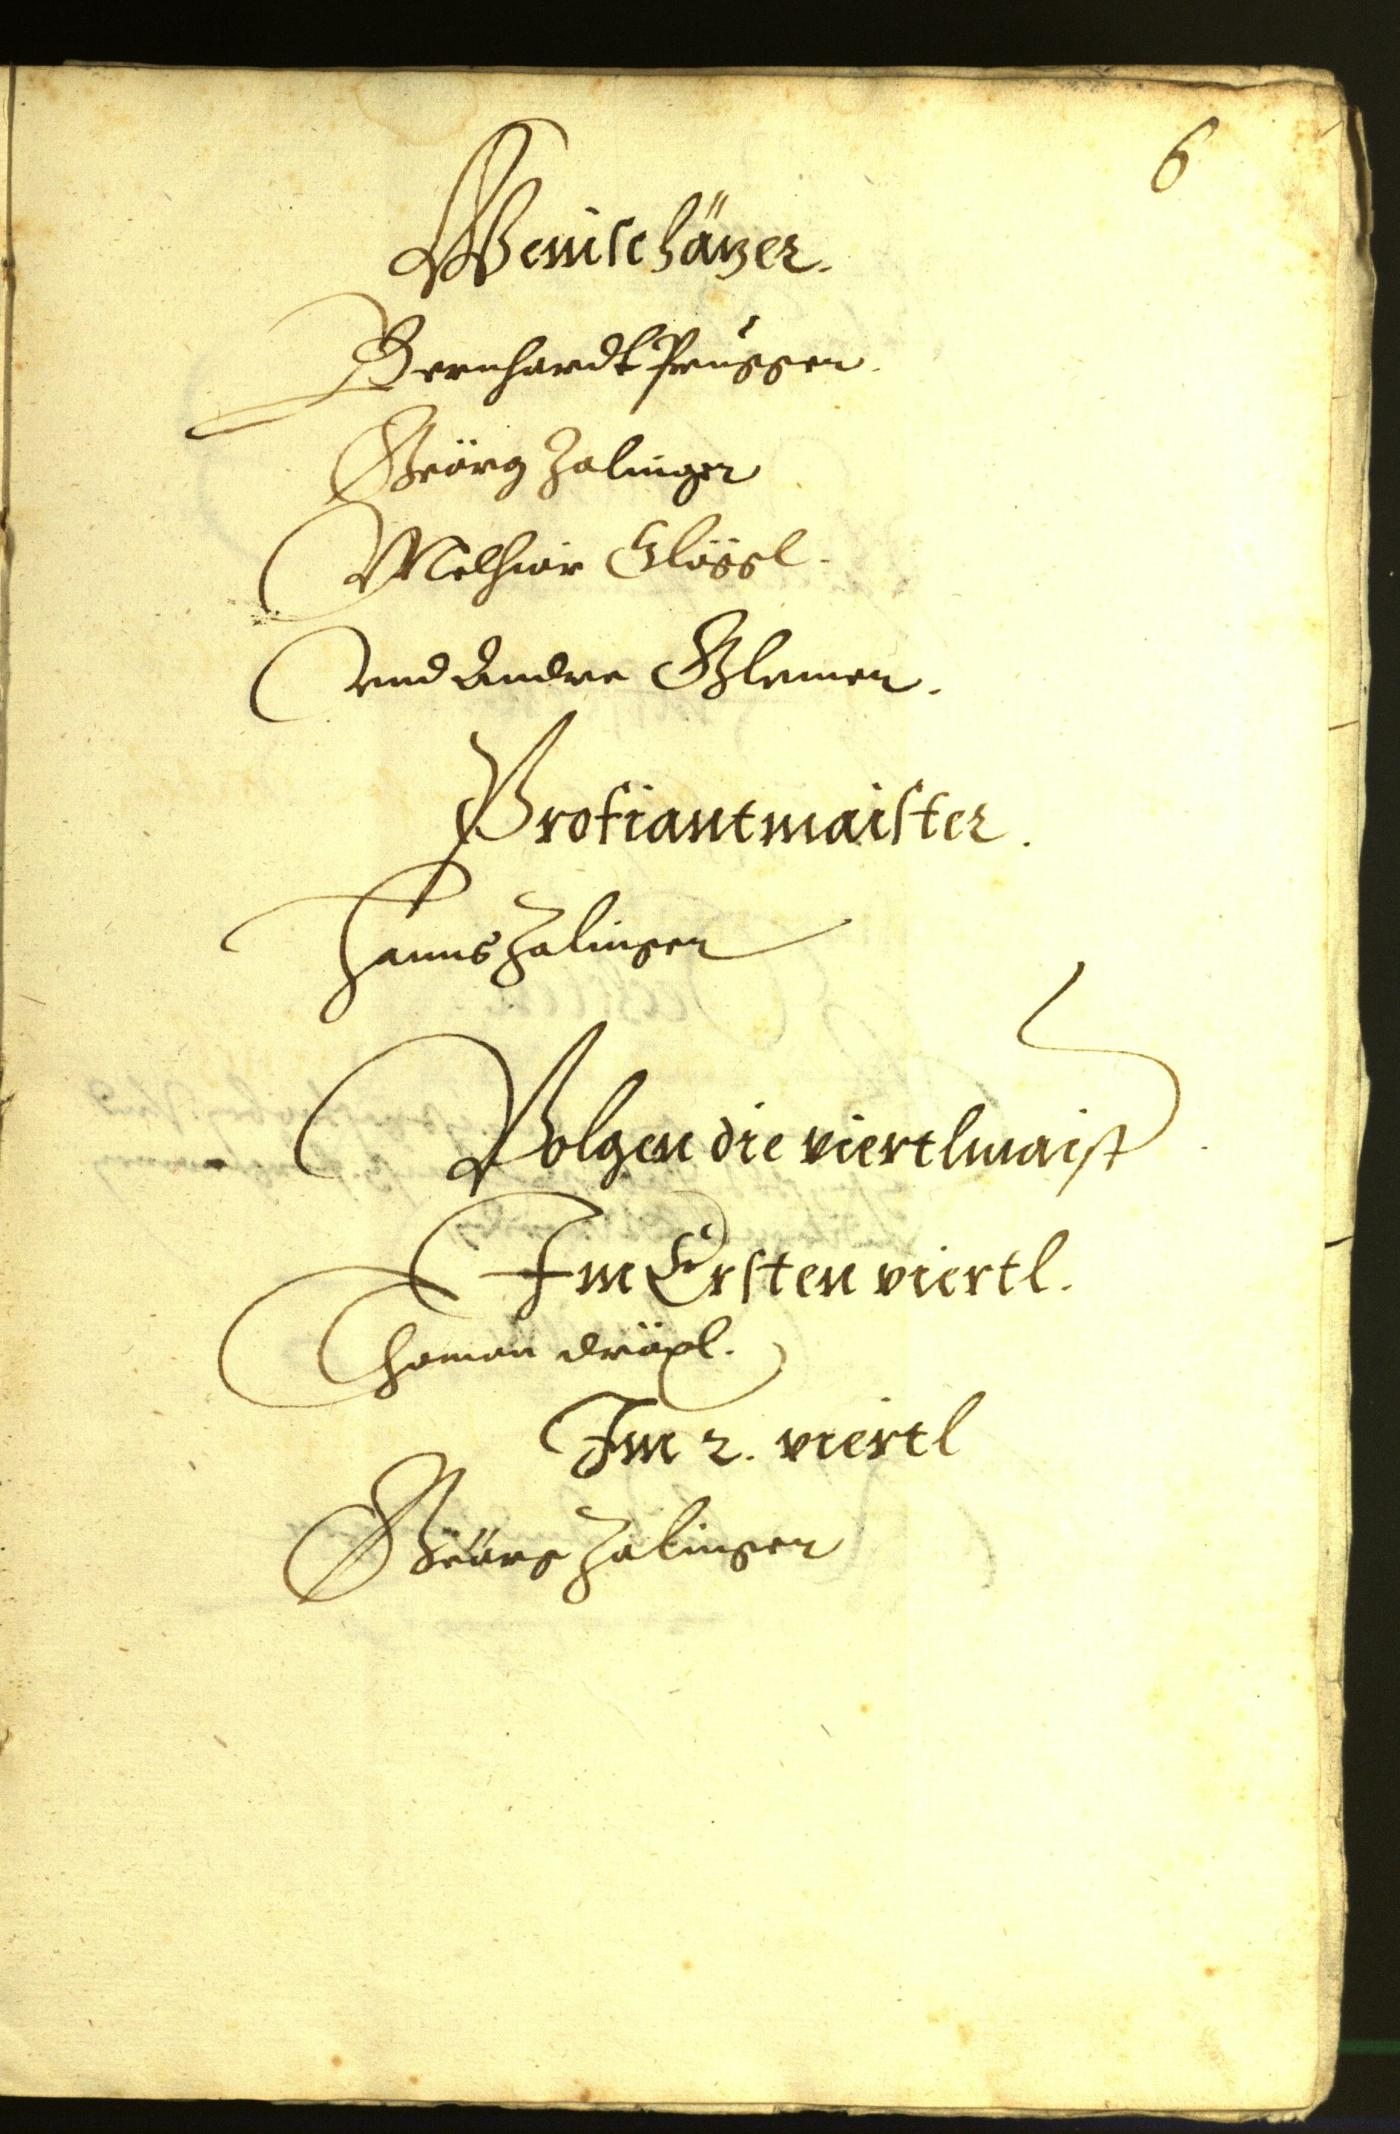 6
Weinschäzer.
Bernhardt Preusser.
Geörg Zalinger
Melhior Glössl.
vnd Andre
Profiantmaister.
Hanns Zalinger
Volgen die viertlmaist
Im Ersten viertl.
Thoman dräxl.
Im 2. viertl
Geörg Zalinger